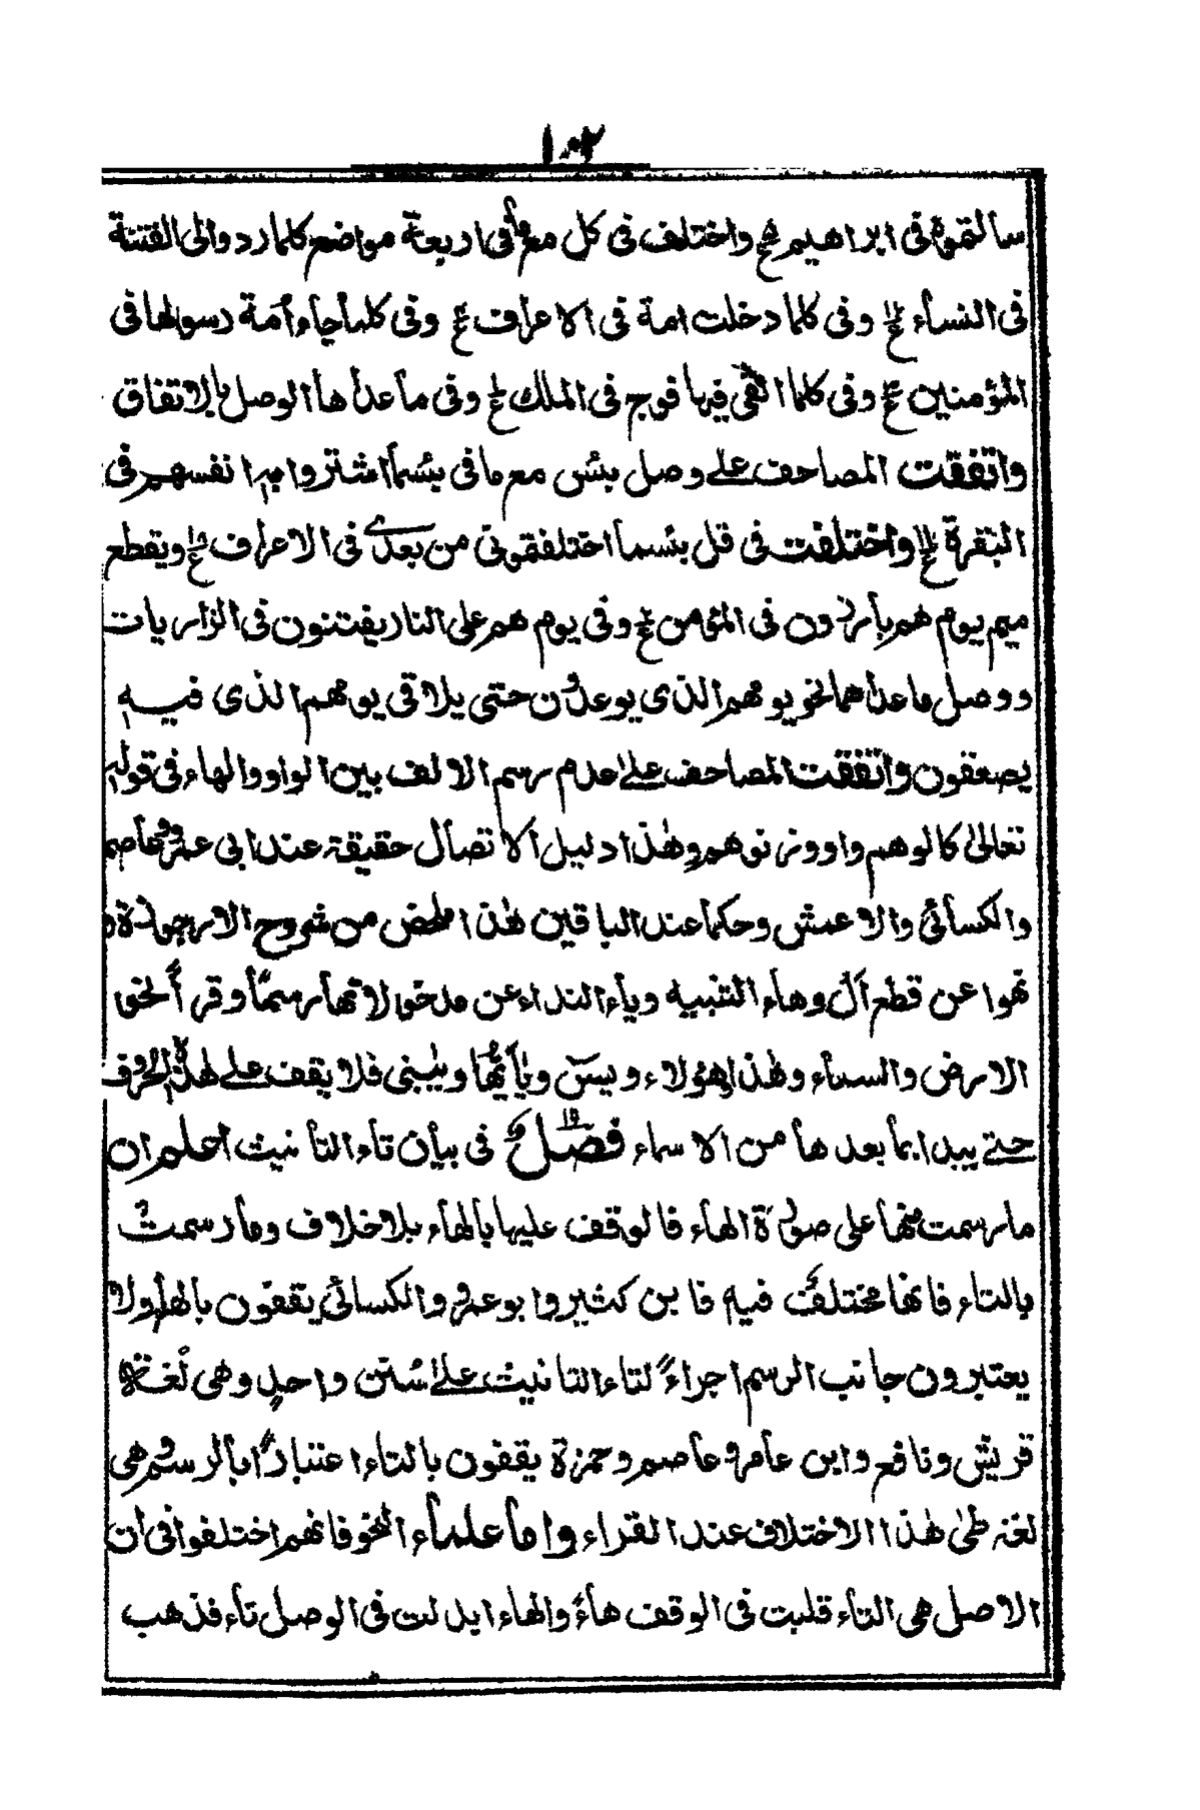 ١٠٢
سألتموه فى ابراهيم ع واختلف فى كل مع ما فى اربعة مواضع كلما ردوا الى الفتنة
فى النساء ع وفى كلما دخلت امة فى الاعراف ع وفى كلما جاء أمة رسولها فى
المؤمنين ع وفى كلما القى فيها فوج فى الملك ع وفى ما عداها الوصل بالاتفاق
واتفقت المصاحف على وصل بئس مع ما فى بئسما اشتروا به انفسهم فى
البقرة ع واختلفت فى قل بئسما اختلفقونى من بعدى فى الاعراف ع ويقطع
ميم يوم هم بارزون فى المؤمن ع وفى يوم هم على النار يفتنون فى الزاريات
ووصل ما عداهما نحو يومهم الذى يوعدون حتى يلاقى يومهم الذى فيه
يصعقون واتفقت المصاحف على عدم رسم الالف بين الواو والهاء فى قوله
تعالىٰ كالوهم واووزنوهم وهٰذا دليل الاتصال حقيقة عند ابى عمرو وعاصم
والكسائى والاعمش وحكما عند الباقين هٰذا ملخص من شروح الارجوزة و
نهوا عن قطع اَلْ وهاء التنبيه وياء النداء عن مدخولاتها رسمًا وقرأً نحو
الارض والسماء وهٰذا وهٰؤلاء ويسٓ ويٰأيُّها ويٰبنى فلا يقف على هٰذه الحروف
حتى يبدا بما بعدها من الاسماء فصل ١٩ فى بيان تاء التأنيث اعلم ان
ما رسمت منها على صورة الهاء فالوقف عليها بالهاء بلا خلاف وما رسمت
بالتاء فانها مختلف فيه فابن كثير وابو عمرو والكسائى يقفون بالهاء ولا
يعتبرون جانب الرسم اجراءً لتاء التانيث على سُنن واحدٍ وهى لُغة
قريش ونافع وابن عامر وعاصم وحمزة يقفون بالتاء اعتبارًا بالرسم وهى
لغة طىٰ هٰذا الاختلاف عند القراء واما علماء النحو فانهم اختلفوا فى ان
الاصل هى التاء قلبت فى الوقف هاءً والهاء ابدلت فى الوصل تاء فذهب